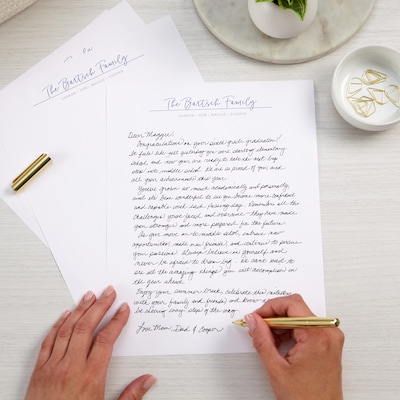 The Bartsch Family
The Bartsch Family
Dear Maggie,
Congratulations on your sixth grade graduation!
It feels like just yesterday you were starting elementary
school and now you are ready to take the next big
step into middle school. We are so proud of you and
all your achievements this year.
You've grown so much academically and personally,
and it's been wonderful to see you become more confident
and capable with each passing day. Remember all the
challenges you've faced and overcome - they have made
you stronger and more prepared for the future.
As you move on to middle school, embrace new
opportunities, make new friends, and continue to pursue
your passions. Always believe in yourself and
never be afraid to dream big. We can't wait to
see all the amazing things you will accomplish in
the year ahead.
Enjoy your summer break, celebrate this milestone
with your family and friends, and know
be cheering every step of the way.
Love Mom, Dad & Cooper